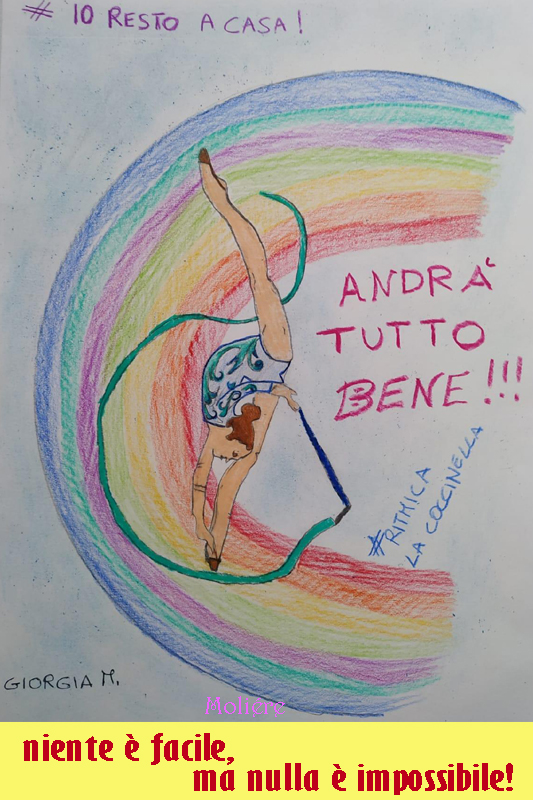 # IO RESTO A CASA!
ANDRA'
TUTTO
BENE!!!
#RITMICA
LA COCCINELLA
GIORGIA M.
Molière
niente è facile,
ma nulla è impossibile!